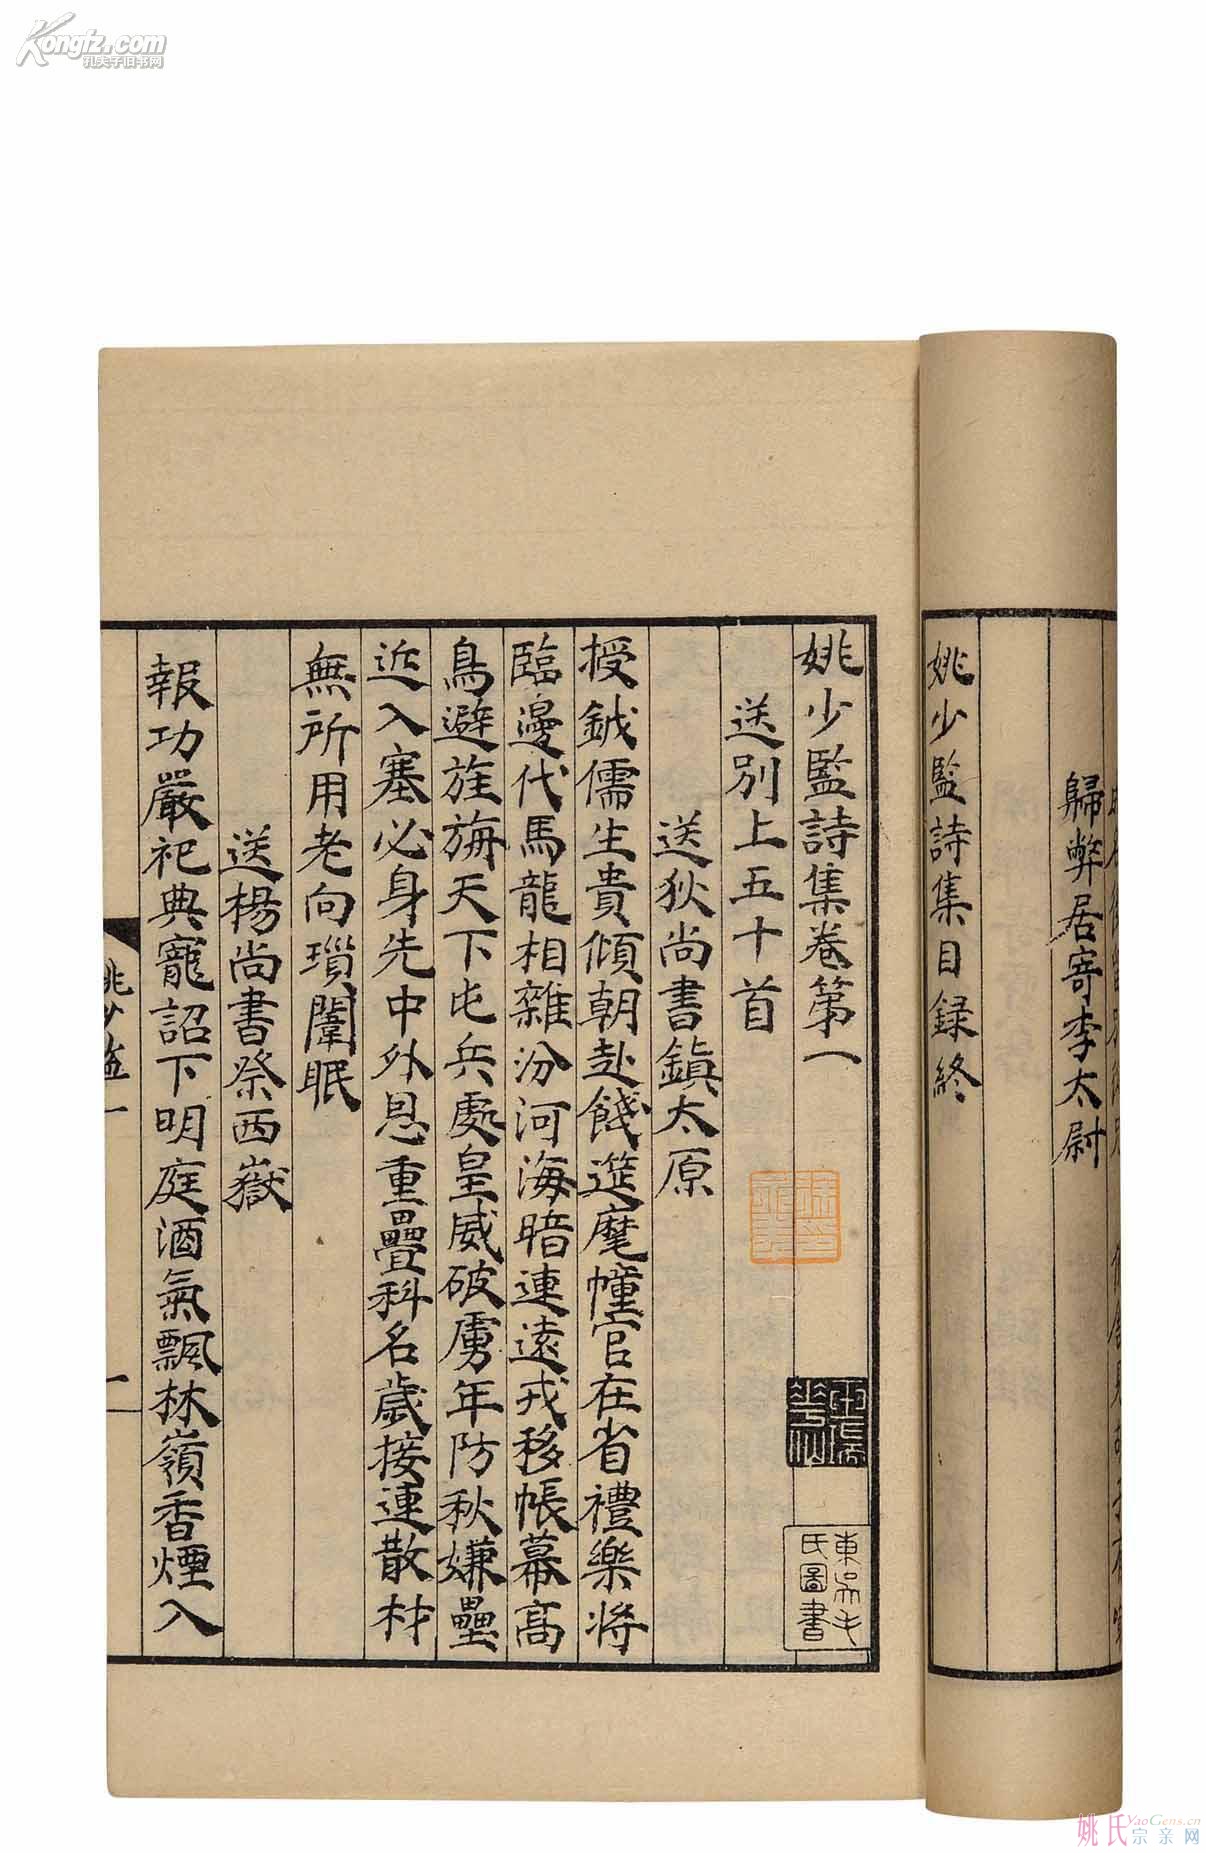 Kongfz.com
孔夫子旧书网
歸弊居寄李太尉
姚少監詩集目録終
姚少監詩集卷第一
送別上五十首
送狄尚書鎮太原
授鉞儒生貴傾朝赴餞筵麾幢官在省禮樂將
臨邊代馬龍相雜汾河海暗連遠戎移帳幕高
鳥避旌旃天下屯兵處皇威破虜年防秋嫌壘
近入塞必身先中外恩重疊科名歲接連散材
無所用老向瑣闈眠
送楊尚書祭西嶽
報功嚴祀典寵詔下明庭酒氣飄林嶺香煙入
姚少監一
一
東吳毛
氏圖書
姚氏YaoGens.cn
宗亲网